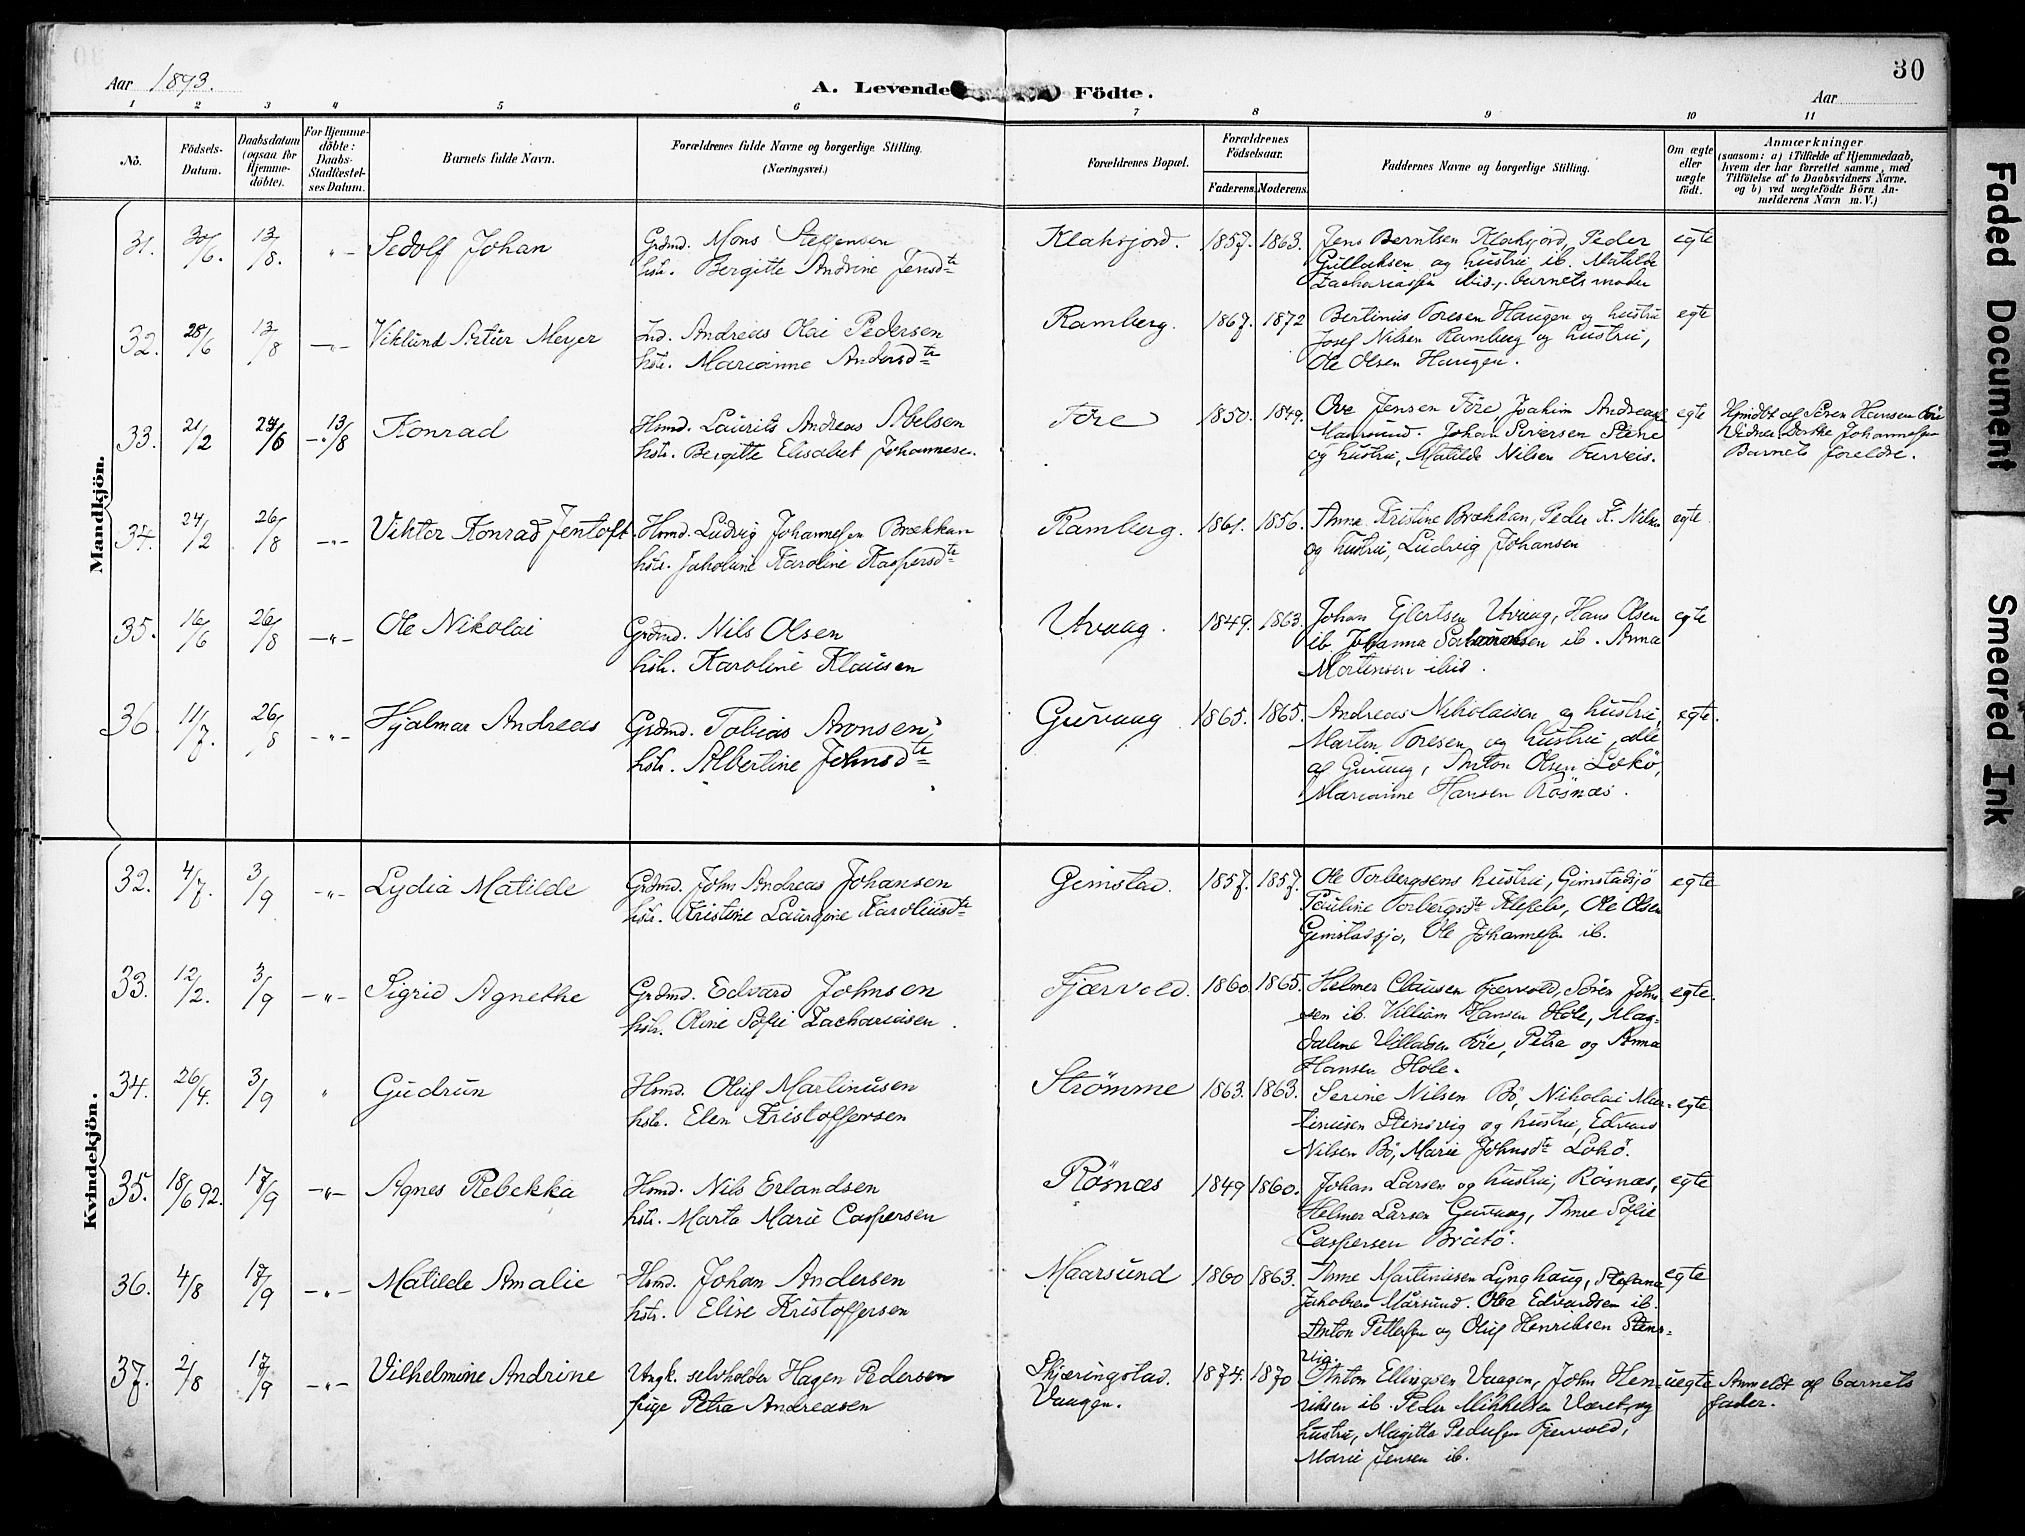 30
Aar 1893.
A. Levende Födte.
Aar
1 2 3 4 5 6 7 8 9 10 11
No.
Födsels-Datum.
Daabsdatum (ogsaa for Hjemme-döbte).
For Hjemme-döbte: Daabs-Stadfæstel-ses Datum.
Barnets fulde Navn.
Forældrenes fulde Navne og borgerlige Stilling.
(Næringsvei.)
Forældrenes Bopæl.
Forældrenes Födselsaar.
Faderens. Moderens.
Faddernes Navne og borgerlige Stilling.
Om ægte eller uægte födt.
Anmærkninger
(saasom: a) i Tilfælde af Hjemmedaab, hvem der har forrettet samme, med Tilföielse af to Daabsvidners Navne, og b) ved uægtefödte Börn Anmelderens Navn m. V.)
Mandkjön.
31. 30/6. 13/8. -"- Sedolf Johan Grdmd. Mons Steffensen Klaksjord. 1857. 1863. Jens Berntsen Klaksjord, Peder egte
hstr. Bergitte Andrine Jensdtr
Gulliksen og hustru ib. Matilde
Zachariassen ibid., barnets moder
32. 28/6 13/8 -"- Viklund Artur Meyer Ind. Andreas Olai Pedersen Ramberg. 1867. 1872 Bertinus Toresen Haugen og hustru egte
hstr. Marianne Andersdtr
Josef Nilsen Ramberg og hustru,
Ole Olsen Haugen.
33. 21/2 24/6 13/8 Konrad Hsmd. Laurits Andreas Abelsen Före 1850. 1849. Ove Jensen Före Joakim Andreas egte Hjmdbt af Sören Hansen Före
hstr. Bergitte Elisabet Johannesen.
Maarsund. Johan Siversen Stene
Vidner: Dorthe Johannessen
og hustru, Matilde Nilsen
Barnets foreldre.
34. 24/2 26/8 -"- Viktor Konrad Jentoft Hsmd. Ludvig Johannessen Brækkan Ramberg. 1861. 1856. Anna Kristine Brækkan, Peder K. Nilsen egte
hstr. Jakobine Karoline Kaspersdtr
og hustru, Ludvig Johansen
35. 16/6 26/8 -"- Ole Nikolai Grdmd. Nils Olsen Utvaag. 1849. 1863. Johan Ejlertsen Utvaag, Hans Olsen egte
hstr. Karoline Klausen
ib. Johanna ib. Anna
Martinsen ibid.
36. 11/7. 26/8 -"- Hjalmar Andreas Grdmd. Tobias Aronsen, Guvaag 1865. 1865. Andreas Nikolaisen og hustru, egte.
hstr. Albertine Johnsdtr
Martin Toresen og hustru alle
af Guvaag, Anton Olsen Lokö,
Marianne Hansen Rösnæs.
Kvindekjön.
32. 4/7. 3/9 -"- Lydia Matilde Grdmd. John Andreas Johansen Gimstad. 1857. 1857. Ole Torbergsens hustru, Gimstadsjö egte
hstr. Kristine Laurentine Karoliusdtr
Pauline Torbergsdtr Ole Olsen
Gimstadsjö, Ole Johannessen ib.
33. 12/2. 3/9 -"- Sigrid Agnethe Grdmd. Edvard Johnsen Fjærvold. 1860. 1865. Helmer Clausen Fjærvold, Sören John- egte.
hstr. Oline Sofie Zachariasen.
sen ib. Villiam Hansen Hole, Mag-
dalene Villadsen Före, Petra og Anna
Hansen Hole.
34. 26/4. 3/9 " Gudrun Hsmd. Oluf Martinusen Strömme 1863. 1863. Serine Nilsen Bö, Nikolai Mar- egte
hstr. Elen Kristoffersen
tinusen Stensvig og hustru, Edvard
Nilsen Bö, Marie Johnsdtr Lokö.
35. 18/6 92. 17/9 -"- Agnes Rebekka Hsmd. Nils Erlandsen Rösnæs 1849 1860. Johan Larsen og hustru, Rösnæs, egte
hstr. Marta Marie Caspersen
Helmer Larsen Guvaag, Anne Sofie
Caspersen Bråtö.
36. 4/8 17/9 -"- Matilde Amalie Hsmd. Johan Andersen Maarsund 1860 1863. Anne Martinusen Lynghaug, Stefana egte
hstr. Elise Kristoffersen
Jakobsen Mårsund. Olea Edvardsen ib.
Anton Pettersen og Oluf Henriksen Stens-
vig.
37. 2/8 17/9 -"- Vilhelmine Andrine Ungk. selvholder Hagen Pedersen Skjæringstad. 1874. 1870 Anton Ellingsen Vaagen, John Hen- uegte Anmeldt af barnets
pige Petra Andreasen Vaagen.
riksen ib. Peder Mikkelsen Været og
fader.
hustru, Magitta Pedersen Fjærvold,
Marie Jensen ib.
Faded Document
Smeared Ink